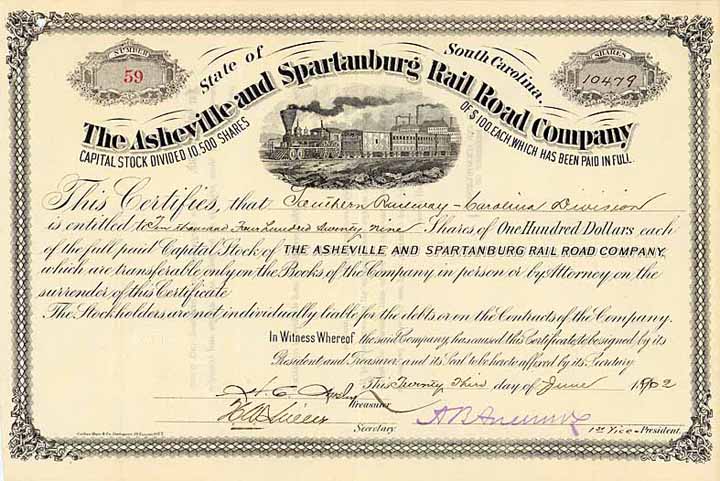 NUMBER
59
State of South Carolina.
SHARES
10479
The Asheville and Spartanburg Rail Road Company
CAPITAL STOCK DIVIDED 10.500 SHARES OF $100 EACH, WHICH HAS BEEN PAID IN FULL.
This Certifies, that Southern Railway - Carolina Division
is entitled to Ten thousand Four hundred seventy nine Shares of One Hundred Dollars each
of the full paid Capital Stock of THE ASHEVILLE AND SPARTANBURG RAIL ROAD COMPANY,
which are transferable only on the Books of the Company in person or by Attorney on the
surrender of this Certificate
The Stockholders are not individually liable for the debts or on the Contracts of the Company.
In Witness Whereof the said Company, has caused this Certificate to be signed by its
President and Treasurer and its Seal to be hereto affixed by its Secretary
This Twenty Third day of June 1902
Treasurer
Secretary.
1st Vice-President.